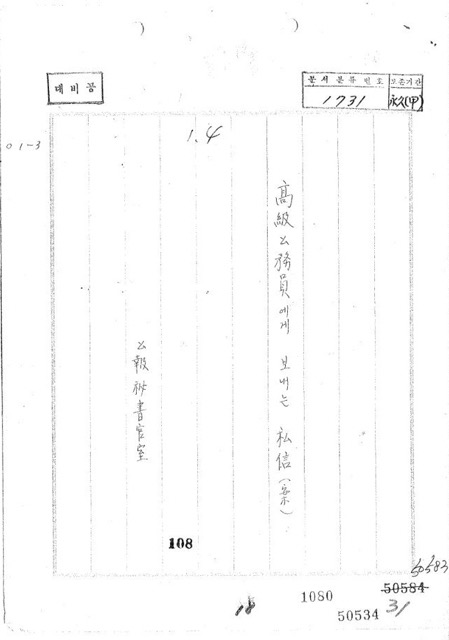 대비공
문서분류번호 보존기간
1731 永久(甲)
01-3
1.4
高級公務員에게 보내는 私信(案)
公報秘書官室
108
50583
50584
1080
18
50534 31